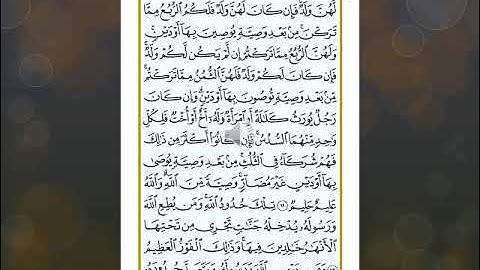 لَّهُنَّ وَلَدٌ فَإِن كَانَ لَهُنَّ وَلَدٌ فَلَكُمُ الرُّبُعُ مِمَّا
تَرَكْنَ مِنۢ بَعْدِ وَصِيَّةٍ يُوصِينَ بِهَا أَوْ دَيْنٍ
وَلَهُنَّ الرُّبُعُ مِمَّا تَرَكْتُمْ إِن لَّمْ يَكُن لَّكُمْ وَلَدٌ
فَإِن كَانَ لَكُمْ وَلَدٌ فَلَهُنَّ الثُّمُنُ مِمَّا تَرَكْتُم
مِّنۢ بَعْدِ وَصِيَّةٍ تُوصُونَ بِهَا أَوْ دَيْنٍ وَإِن كَانَ
رَجُلٌ يُورَثُ كَلَٰلَةً أَوِ امْرَأَةٌ وَلَهُۥ أَخٌ أَوْ أُخْتٌ فَلِكُلِّ
وَٰحِدٍ مِّنْهُمَا السُّدُسُ فَإِن كَانُوٓا۟ أَكْثَرَ مِن ذَٰلِكَ
فَهُمْ شُرَكَآءُ فِى الثُّلُثِ مِنۢ بَعْدِ وَصِيَّةٍ يُوصَىٰ
بِهَآ أَوْ دَيْنٍ غَيْرَ مُضَآرٍّ وَصِيَّةً مِّنَ اللَّهِ وَاللَّهُ
عَلِيمٌ حَلِيمٌ ١٢ تِلْكَ حُدُودُ اللَّهِ وَمَن يُطِعِ اللَّهَ
وَرَسُولَهُۥ يُدْخِلْهُ جَنَّٰتٍ تَجْرِى مِن تَحْتِهَا
الْأَنْهَٰرُ خَٰلِدِينَ فِيهَا وَذَٰلِكَ الْفَوْزُ الْعَظِيمُ